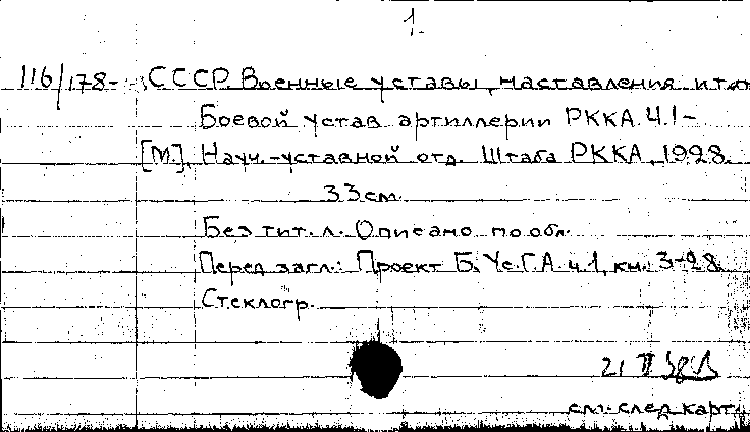 1.
116/178- СССР. Военные уставы, наставления и т.п.
Боевой устав артиллерии РККА. Ч. 1-
[М.], Науч.-уставной отд. Штаба РККА, 1928.
33 см.
Без тит. л. Описано по обл.
Перед загл.: Проект Б. Ус. Г. А. ч. 1, кн. 3-28.
Стеклогр.
21 II
см. след. карт.